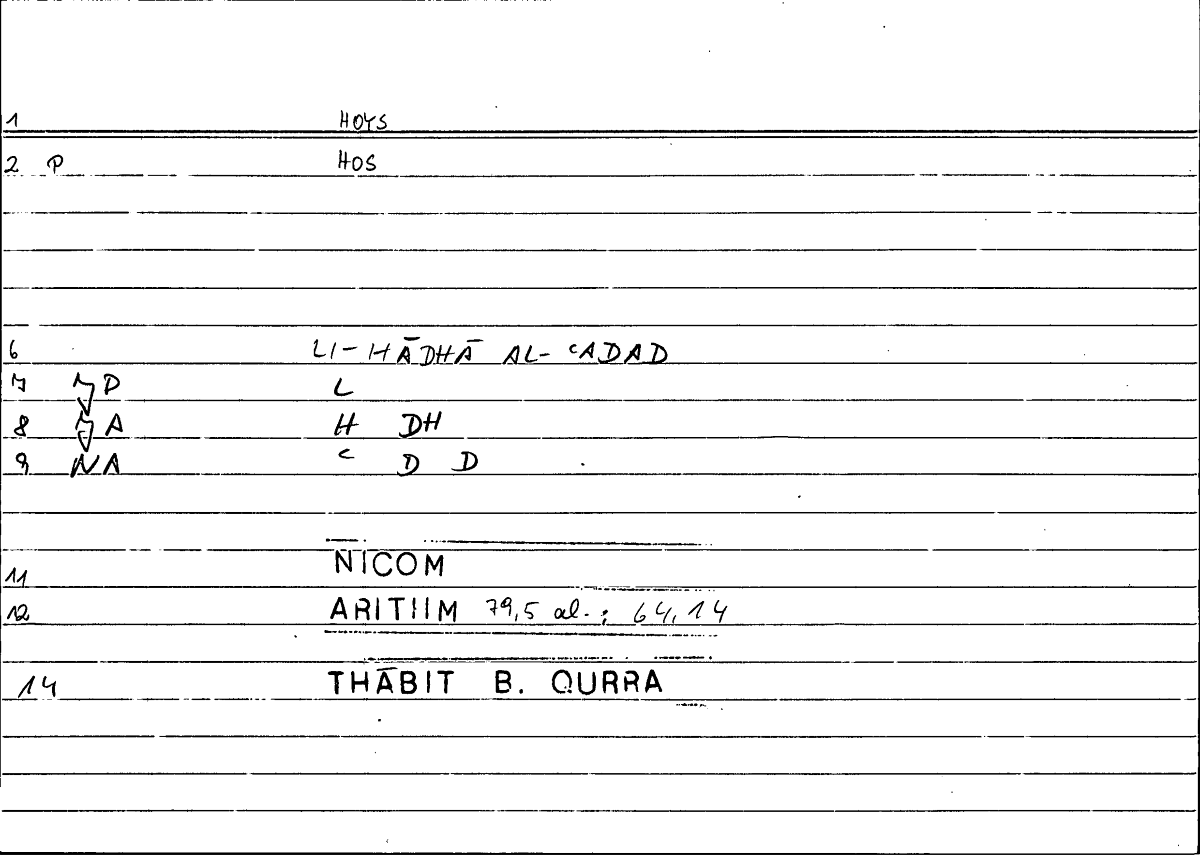 1 HOYS
2 P HOS
6 LI-HĀDHĀ AL-ᶜADAD
7 P L
8 A H DH
9 NA ᶜ D D
11 NICOM
12 ARITIIM 79,5 al.; 64,14
14 THĀBIT B. QURRA